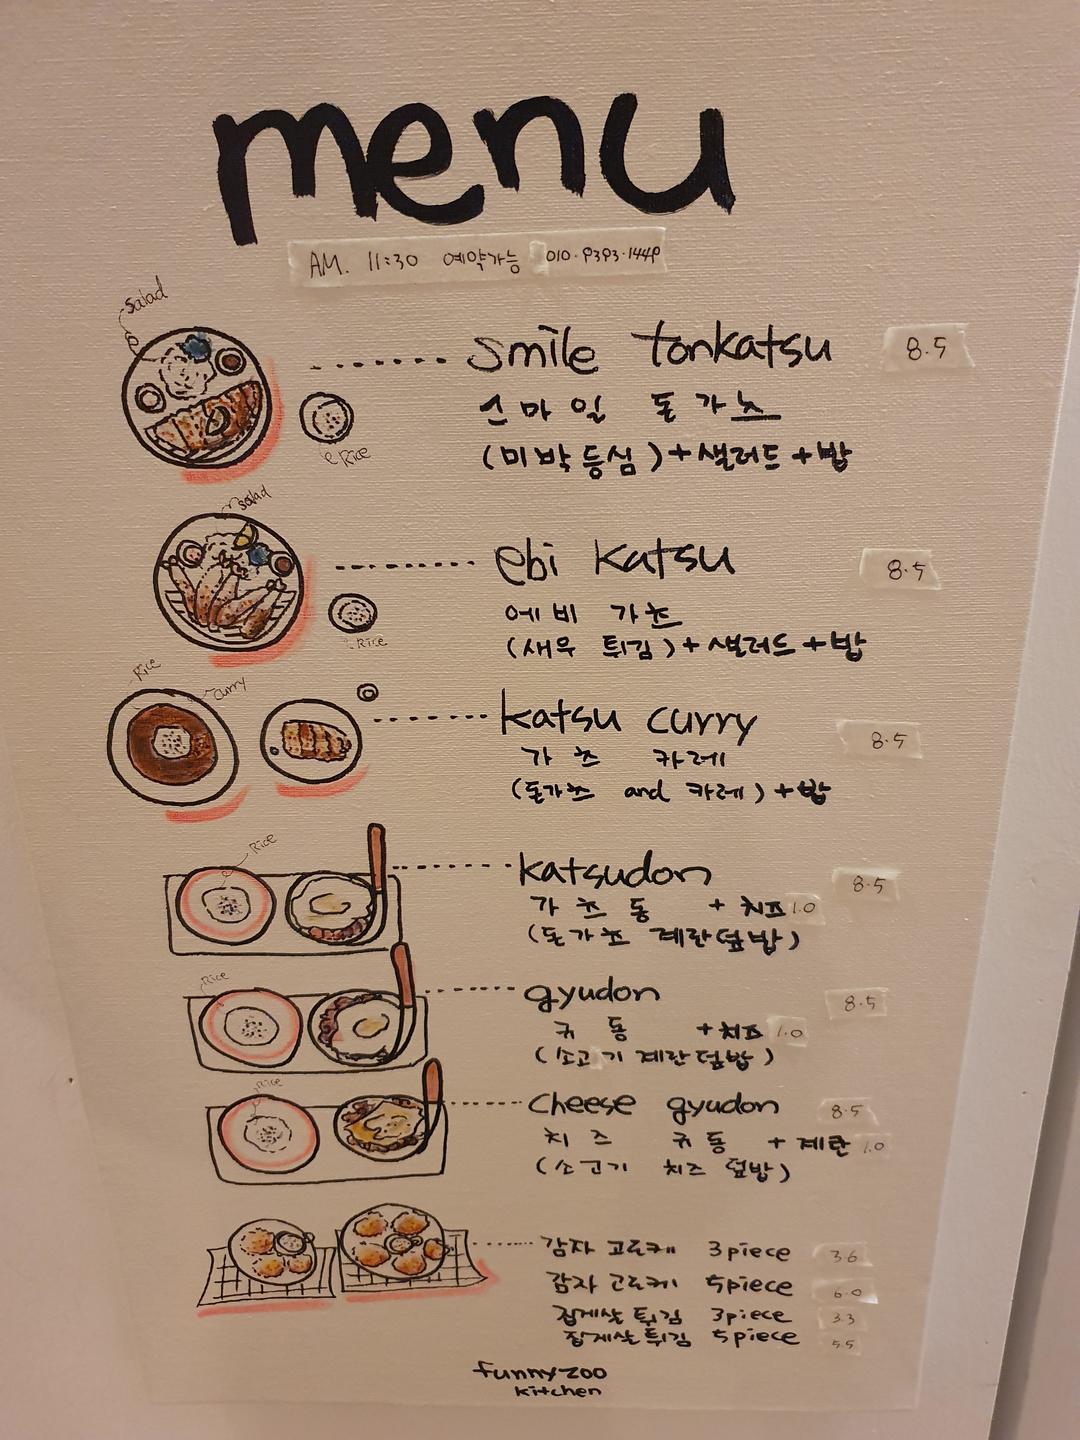 menu
AM. 11:30 예약가능 010·9393·1449
Salad
Smile tonkatsu 8.5
스마일 돈가츠
Rice
(미박등심)+샐러드+밥
Salad
ebi katsu 8.5
에비 가츠
Rice
(새우 튀김)+샐러드+밥
Rice
Curry
katsu curry 8.5
가츠 카레
(돈가츠 and 카레)+밥
Rice
katsudon 8.5
가츠동 +치즈 1.0
(돈가츠 계란덮밥)
Rice
gyudon 8.5
규동 +치즈 1.0
(소고기 계란덮밥)
Rice
Cheese gyudon 8.5
치즈 규동 +계란 1.0
(소고기 치즈 덮밥)
감자 고로케 3piece 3.6
감자 고로케 5piece 6.0
집게살 튀김 3piece 3.3
집게살 튀김 5piece 5.5
funnyzoo
kitchen